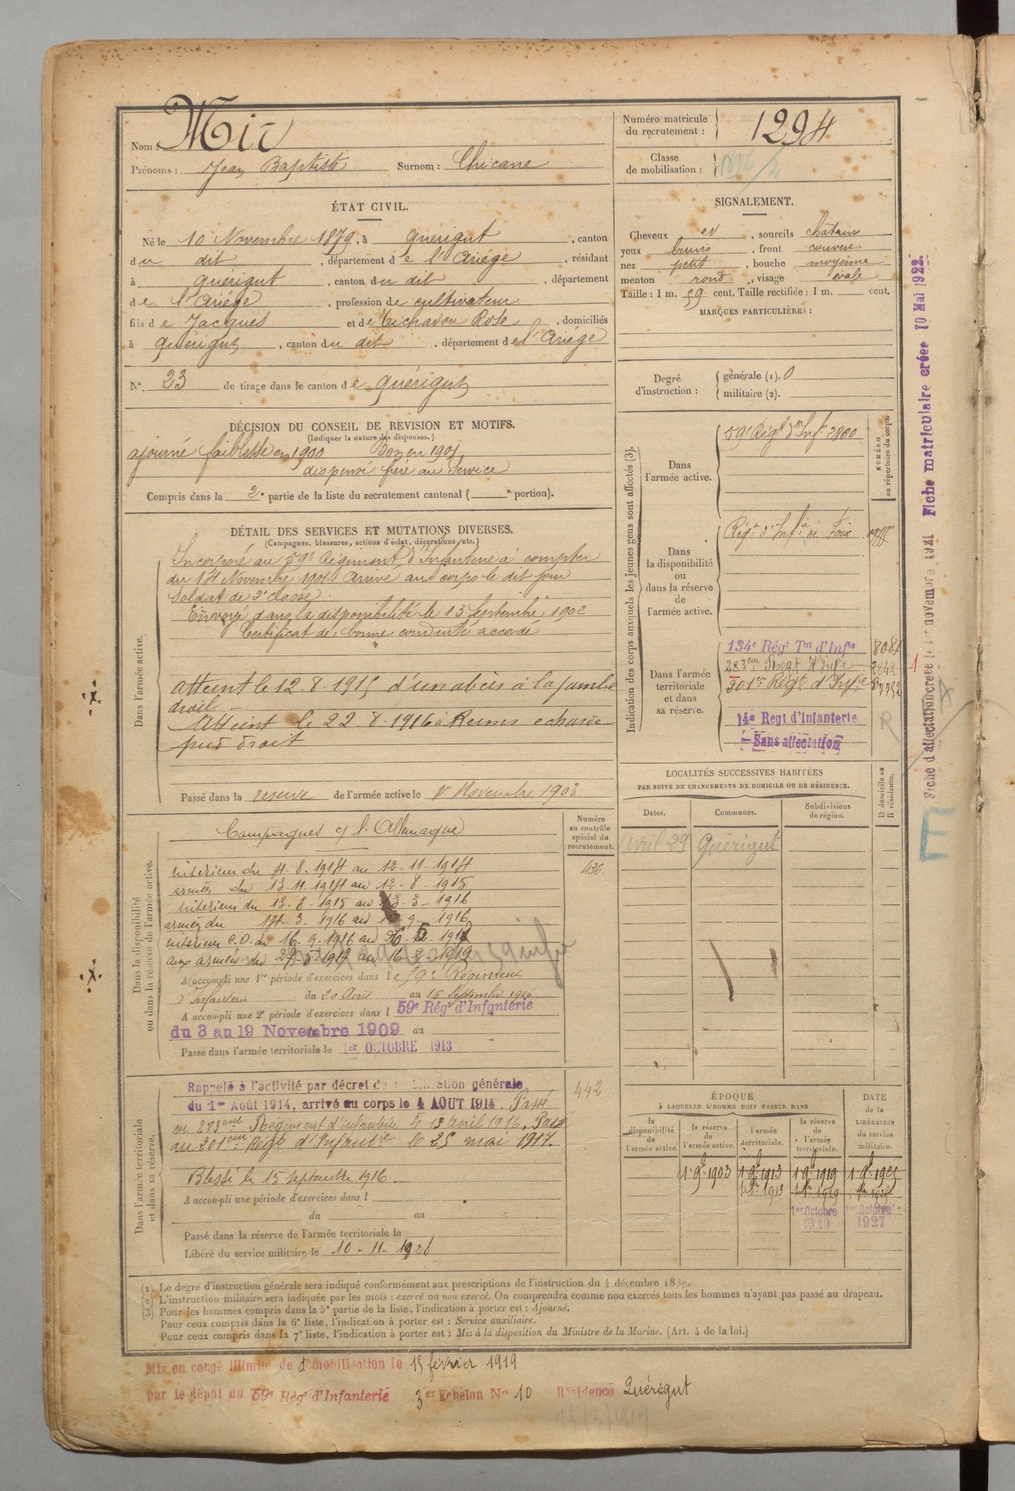 Nom : Mir
Prénoms : Jean Baptiste Surnom : Chicane
Numéro matricule du recrutement : 1294
Classe de mobilisation : 1896/2
ÉTAT CIVIL.
Né le 10 Novembre 1879, à Quérigut, canton
du dit, département de l'Ariège, résidant
à Quérigut, canton du dit, département
de l'Ariège, profession de cultivateur
fils de Jacques et de Michadou Rose, domiciliés
à Quérigut, canton du dit, département de l'Ariège
N° 23 de tirage dans le canton de Quérigut
SIGNALEMENT.
Cheveux et, sourcils châtains
yeux bruns, front couvert
nez petit, bouche moyenne
menton rond, visage ovale
Taille : 1 m. 59 cent. Taille rectifiée : 1 m. cent.
MARQUES PARTICULIÈRES :
Degré d'instruction : générale (1). 0
militaire (2).
DÉCISION DU CONSEIL DE RÉVISION ET MOTIFS.
(Indiquer la nature des dispenses.)
ajourné faiblesse en 1900 Bon en 1901
dispensé frère au service
Compris dans la 2e partie de la liste du recrutement cantonal ( e portion).
DÉTAIL DES SERVICES ET MUTATIONS DIVERSES.
(Campagnes, blessures, actions d'éclat, décorations, etc.)
Dans l'armée active.
Incorporé au 59e Régiment d'Infanterie à compter
du 14 Novembre 1901 Arrivé au corps le dit jour
Soldat de 2e classe.
Envoyé dans la disponibilité le 13 Septembre 1902
Certificat de bonne conduite accordé
atteint le 12.8.1915 d'un abcès à la jambe
droite
Atteint le 22.8.1916 à Reims
pied droit
Passé dans la réserve de l'armée active le 1er Novembre 1903
Indication des corps auxquels les jeunes gens sont affectés (3).
NUMÉRO au répertoire du corps.
Dans l'armée active.
59e Régt d'Inf. 2800
Dans la disponibilité ou dans la réserve de l'armée active.
Régt d'Infie de Foix
Dans l'armée territoriale et dans sa réserve.
134e Régt Tal d'Infie
283eme Regt d'Infie
201er Regt d'Infie
14e Regt d'Infanterie
Sans affectation
Fiche d'affectation créée le 1er novembre 1921 Fiche matriculaire créée 10 Mai 1922.
E
LOCALITÉS SUCCESSIVES HABITÉES
PAR SUITE DE CHANGEMENTS DE DOMICILE OU DE RÉSIDENCE.
Dates. Communes. Subdivisions de région. D domicile ou R résidence.
Avril 29 Quérigut
Dans la disponibilité ou dans la réserve de l'armée active.
Numéro au contrôle spécial du recrutement.
436
Campagnes c/ l'Allemagne
intérieur du 4.8.1914 au 12.11.1914
armées du 13.11.1914 au 12-8-1915
intérieur du 13-8-1915 au 13-3-1916
armées du 14-3-1916 au 15-9-1916
intérieur C.D. du 16.9.1916 au 26.5.1917
aux armées du 27.5.1917 au 16.2.1919
A accompli une 1re période d'exercices dans le 59e Régiment
d'Infanterie du 20 Août au 16 Septembre 1906
A accompli une 2e période d'exercices dans l 59e Régt d'Infanterie
du 3 au 19 Novembre 1909 au
Passé dans l'armée territoriale le 1er OCTOBRE 1913
Dans l'armée territoriale et dans sa réserve.
442
Rappelé à l'activité par décret de mobilisation générale
du 1er Août 1914, arrivé au corps le 4 AOUT 1914. Passé
au 283eme Régiment d'infanterie le 13 avril 1916. Passé
au 201eme Régt d'Infanterie le 25 mai 1917.
Blessé le 15 septembre 1916
A accompli une période d'exercices dans l
du au
Passé dans la réserve de l'armée territoriale le
Libéré du service militaire le 10-11-1928
ÉPOQUE
À LAQUELLE L'HOMME DOIT PASSER DANS
la disponibilité de l'armée active.
la réserve de l'armée active.
l'armée territoriale.
la réserve de l'armée territoriale.
DATE de la LIBÉRATION du service militaire.
1er 9bre 1903 1er 9bre 1913 1er 9bre 1919 1er 9bre 1925
1er Octobre 1920 1er Octobre 1927
(1) Le degré d'instruction générale sera indiqué conformément aux prescriptions de l'instruction du 4 décembre 1889.
(2) L'instruction militaire sera indiquée par les mots : exercé ou non exercé. On comprendra comme non exercés tous les hommes n'ayant pas passé au drapeau.
(3) Pour les hommes compris dans la 5e partie de la liste, l'indication à porter est : Ajourné.
Pour ceux compris dans la 6e liste, l'indication à porter est : Service auxiliaire.
Pour ceux compris dans la 7e liste, l'indication à porter est : Mis à la disposition du Ministre de la Marine. (Art. 4 de la loi.)
Mis en congé illimité de démobilisation le 15 février 1919
par le dépôt du 59e Régt d'Infanterie 3er Echelon No 10 Résidence Quérigut